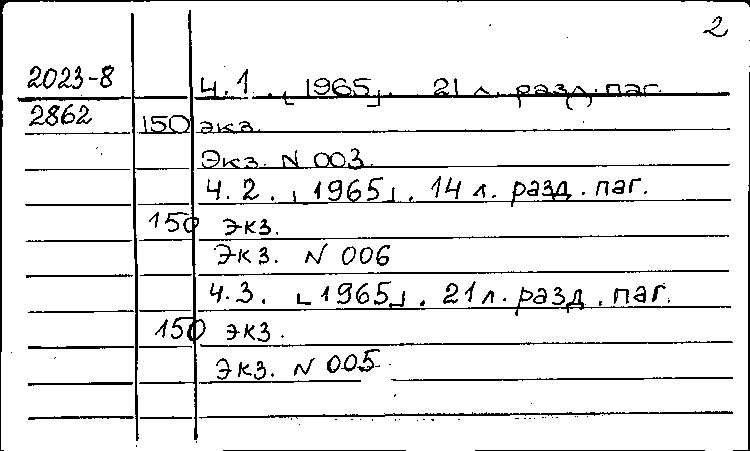 2
2023-8 Ч.1. [1965]. 21 л. разд. паг.
2862 150 экз.
Экз. N 003.
Ч.2. [1965]. 14 л. разд. паг.
150 экз.
Экз. N 006
Ч.3. [1965]. 21 л. разд. паг.
150 экз.
Экз. N 005